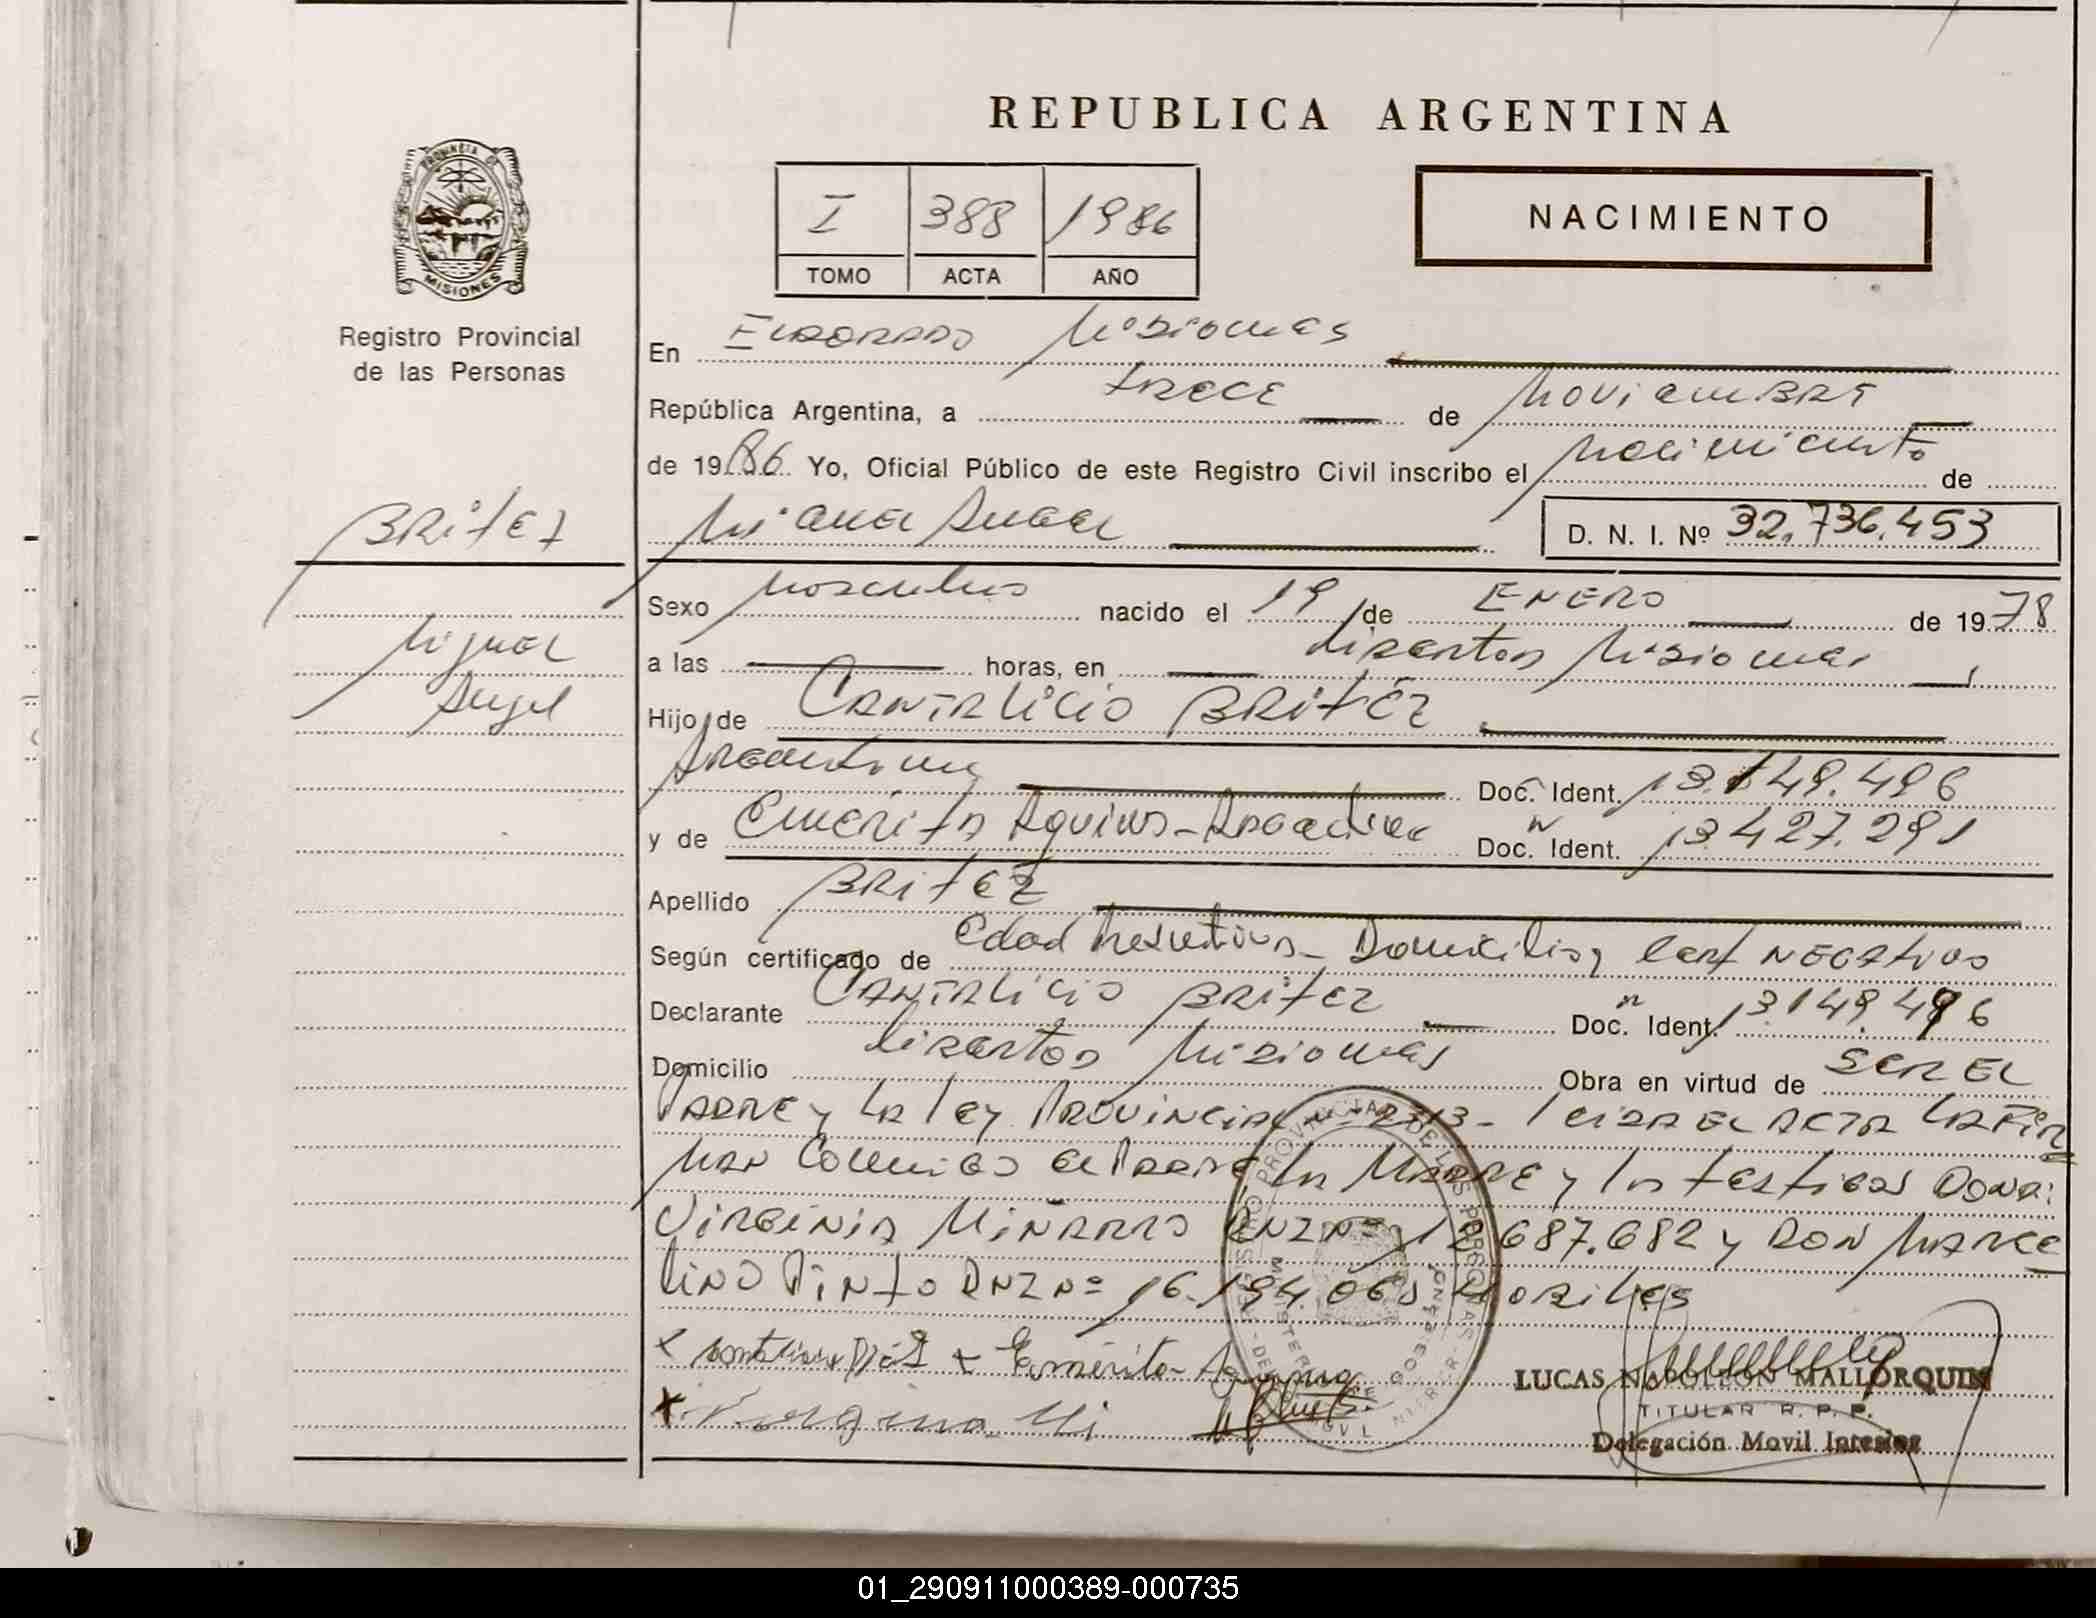 REPUBLICA ARGENTINA
PROVINCIA DE
MISIONES
Registro Provincial
de las Personas
I 388 1986
TOMO ACTA AÑO
NACIMIENTO
En Eldorado Misiones
República Argentina, a trece de Noviembre
de 1986 Yo, Oficial Público de este Registro Civil inscribo el Nacimiento de
Miguel Angel D. N. I. Nº 32.736.453
BRitez
Miguel
Angel
Sexo Masculino nacido el 19 de ENERO de 1978
a las horas, en Libertad Misiones
Hijo de CANTALICIO BRitEZ
Argentino Doc. Ident. 13.149.496
y de Emerita Aquino - Argentina Doc. Ident. 13427.291
Apellido BRitEZ
Según certificado de Edad Presuntiva - Domicilio y Cert NEGAtivo
Declarante CANTALICIO BRitEZ Doc. Ident. 13149.496
Domicilio Libertad Misiones Obra en virtud de SER EL
PADRE y LA Ley PROVINCIAL 2313 - Leida EL ACTA LA FiR
MAN Conmigo el PADRE, La MADRE y los testigos DONA:
ViRGiNiA MiÑARRO DNI Nº 12687.682 y DON MARCE
LiNO PiNto DNI Nº 16.194.063
Emérita Aquino
Virgina Mi
LUCAS NAPOLEON MALLORQUIN
TITULAR R. P. P.
Delegación Movil Interior
01_290911000389-000735